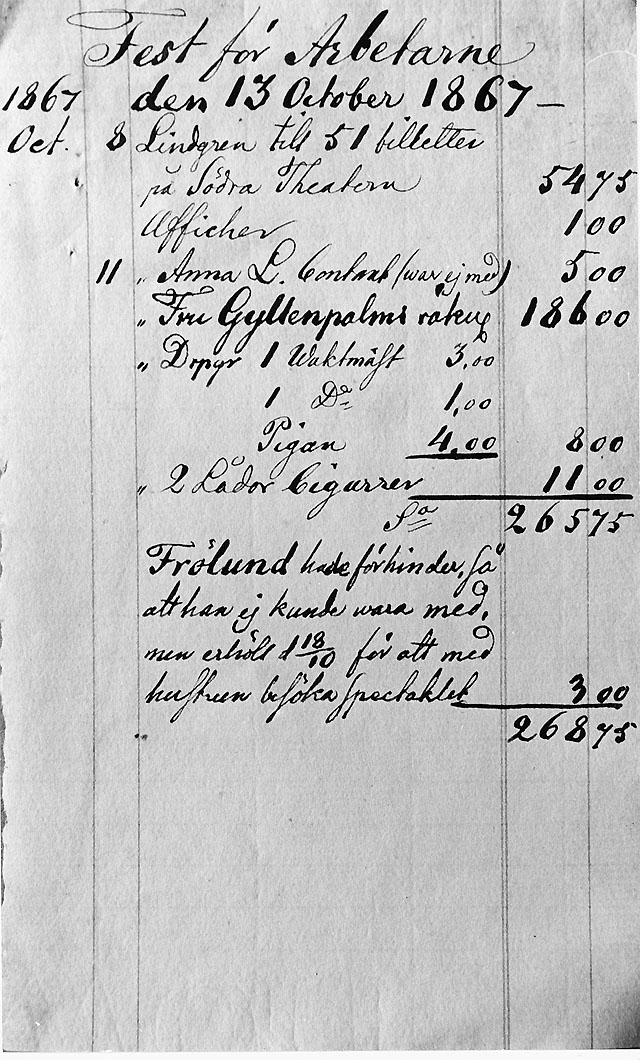 Fest för Arbetarne
1867 den 13 October 1867 –
Oct. 8 Lindgren till 51 billetter
på Södra Theatern 54 75
Afficher 1 00
11 " Anna L. Contant (war ej med) 5 00
" Fru Gyllenpalms räkng 186 00
" Drpgr 1 Waktmäst 3,00
1 Do 1,00
Pigan 4,00 8 00
" 2 Lådor Cigarrer 11 00
Sa 265 75
Frölund hade förhinder, så
att han ej kunde wara med,
men erhöll d 18/10 för att med
hustrun besöka spectaklet 3 00
268 75